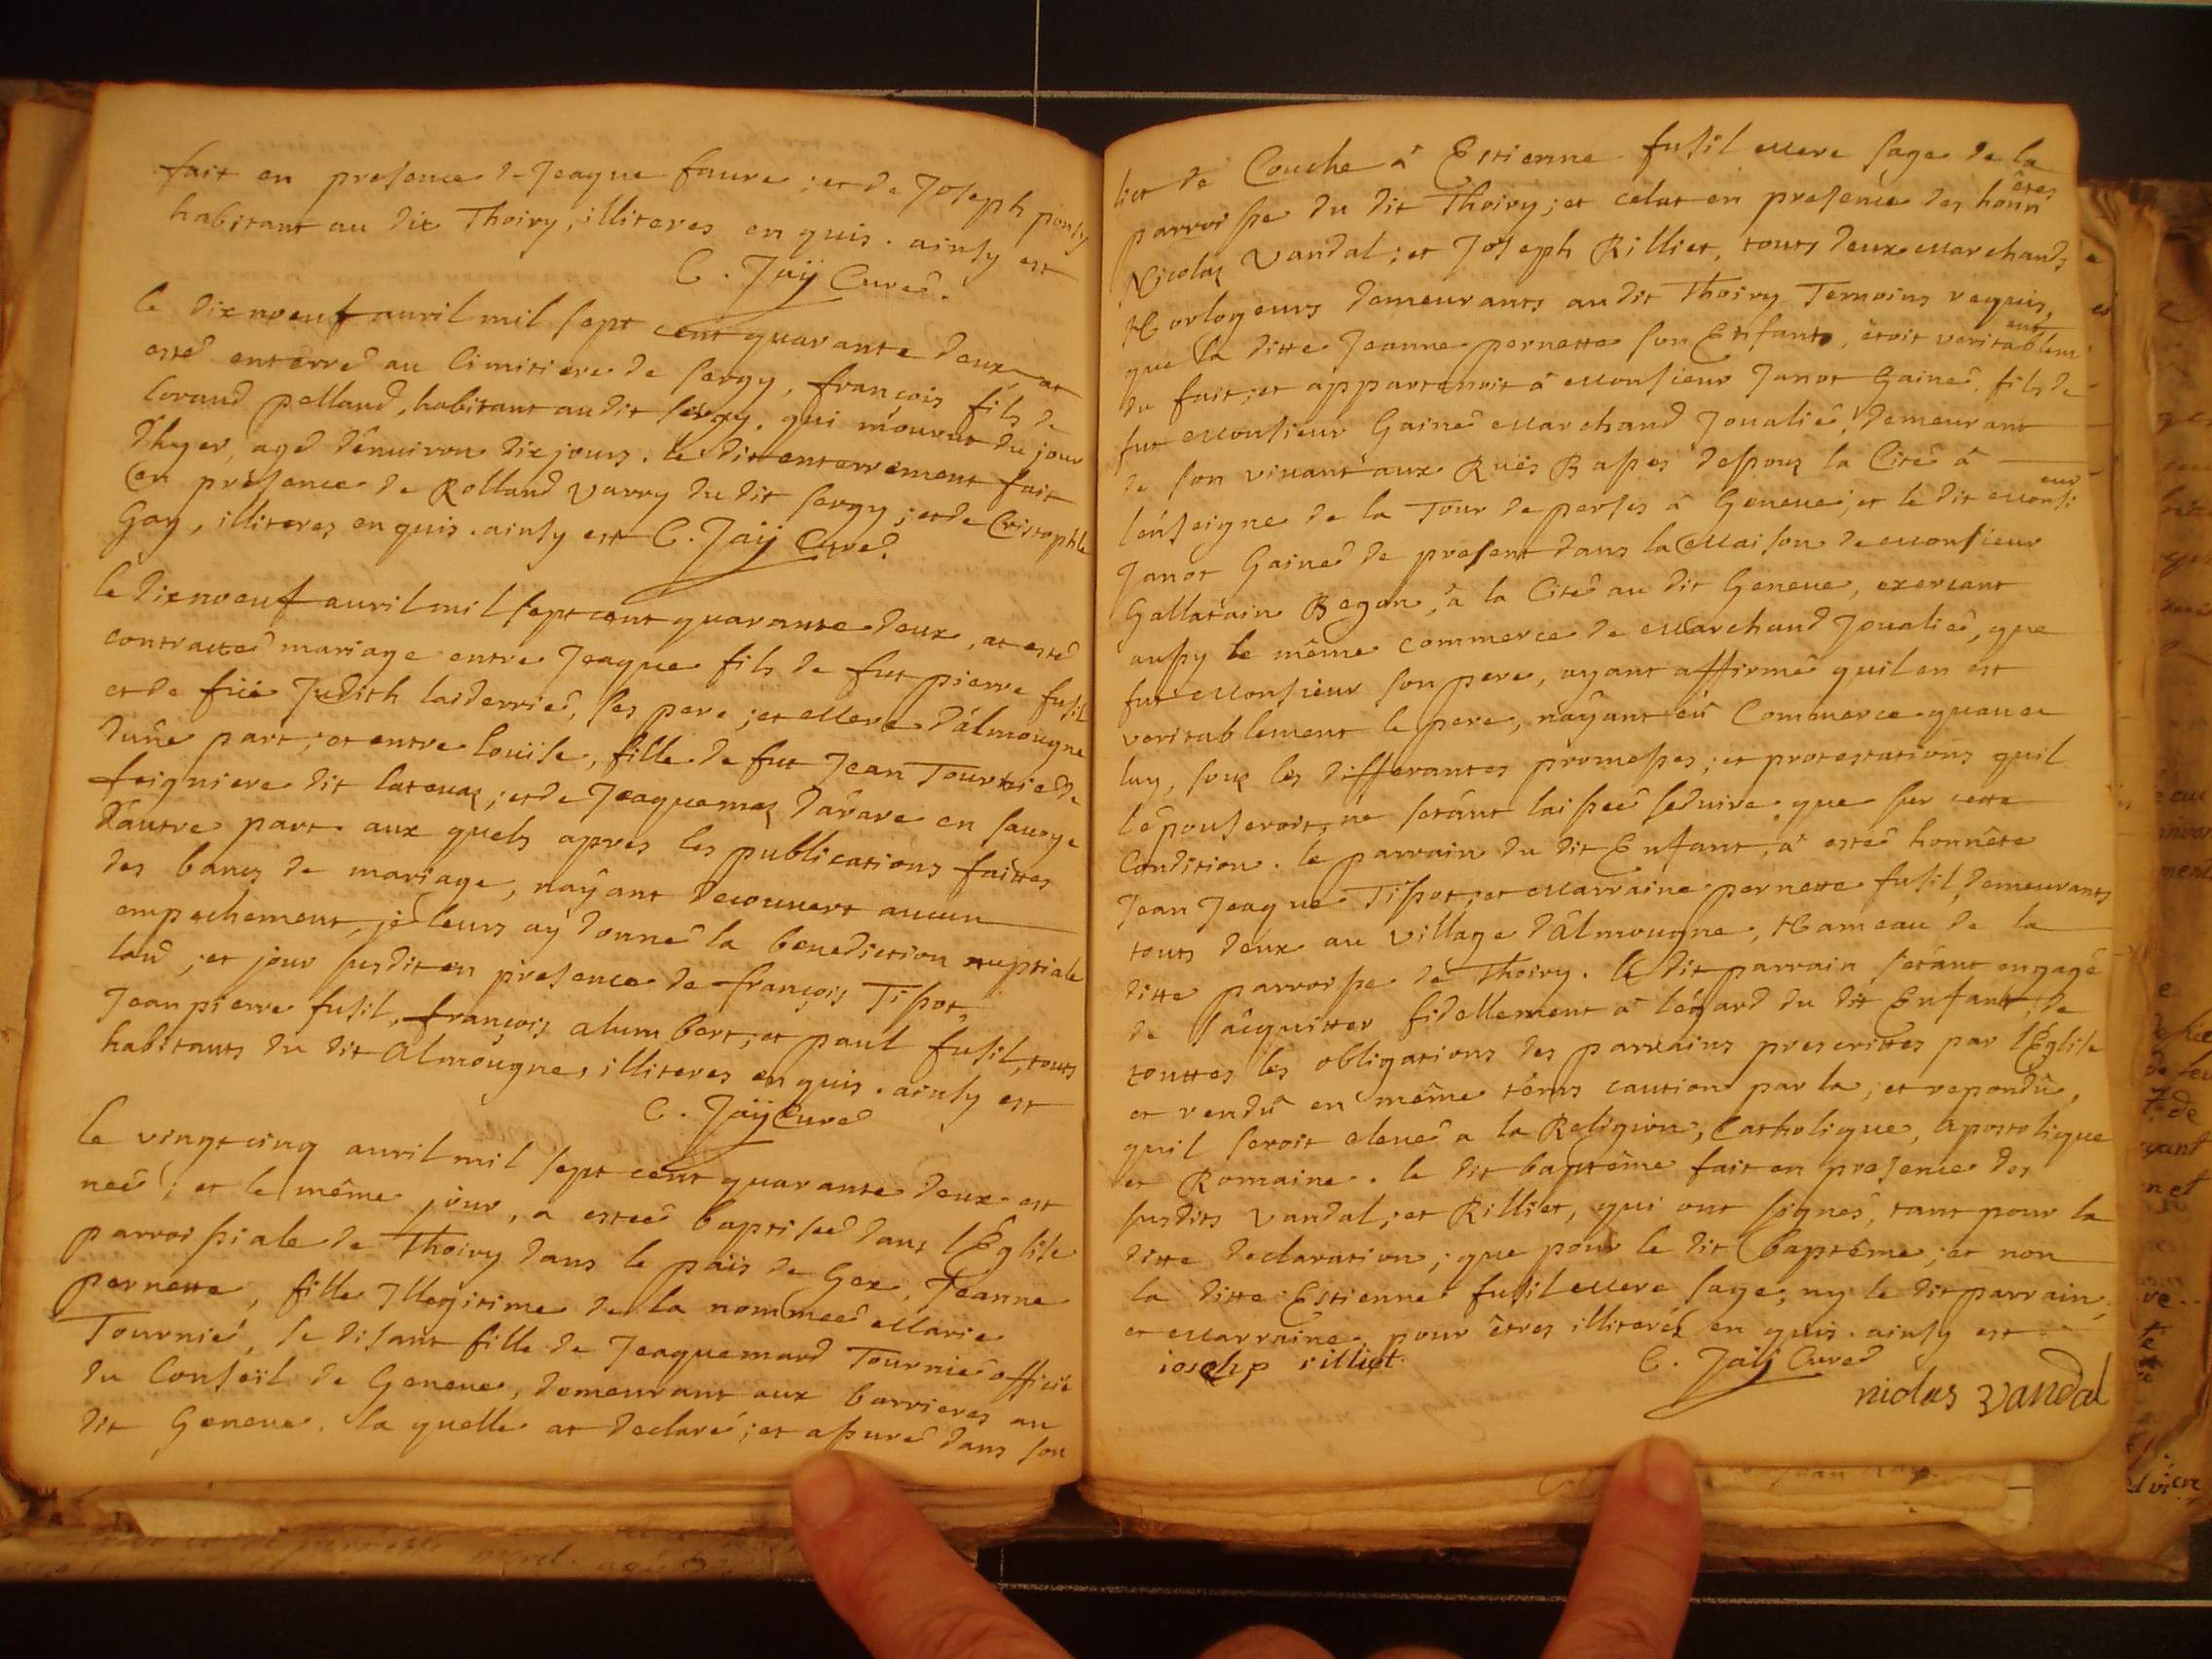 fait en presence de Jeaque faure ; et de Joseph ponsy
habitant au dit Thoiry, illiteres en quis . ainsy est
C . Jaÿ Curé .
le dix noeuf auril mil sept cent quarante deux, at
esté enterré au Cimitiere de sergy, françois fils de
Loraud pelland, habitant au dit sergy, qui mourut du jour
d'hyer, agé d'enuiron dix jours . le dit enterrement fait
en presence de Rolland Varry du dit sergy ; et de Cristophle
Gay, illiteres en quis . ainsy est C . Jaÿ Curé .
le dix noeuf auril mil sept cent quarante deux, at esté
contracté mariage entre Jeaque fils de fut pierre fusil
et de füe Judith laiderrier, ses pere ; et Mere d'almougne
d'une part ; et entre Louïse, fille de fut Jean Tournié de
feigniere dit lateuaz ; et de Jeaquemaz d'arare en sauoye
d'autre part . aux quels apres les publications faittes
des bancs de mariage, n'aÿant decouuert aucun
empechement, je leurs aÿ donné la benediction nuptiale
laud ; et jour susdit en presence de françois Tissot,
Jean pierre fusil, françois alumbert ; et paul fusil, touts
habitants du dit Almougne, illiteres en quis . ainsy est
C . Jaÿ Curé
le vingt cinq auril mil sept cent quarante deux est
neé ; et le même jour, a esteé baptiseé dans l'Eglise
parroissiale de Thoiry dans le païs de Gex, Jeanne
pernette, fille Illegitime de la nommeé Marie
Tournié, se disant fille de Jeaquemard Tournié officié
du Conseïl de Geneue, demeurant aux barrieres au
dit Geneue . la quelle at declaré ; et assuré dans son
lict de Couche à Estienne fusil Mere sage de la
parroisse du dit Thoiry ; et celat en presence des honn êtes
Nicolaz Vandal ; et Joseph Rilliet, touts deux Marchands
Horlogeurs demeurants au dit Thoiry Temoins requis,
que la ditte Jeanne pernette son Enfant, étoit veritablem ent
du fait ; et appartenoit à Monsieur Janot Gainé, fils de
fut Monsieur Gainé Marchand Joualié, demeurant
de son viuant aux Ruës Basses dessouz la Cité à
l'enseigne de la Tour de perses à Geneue ; et le dit Monsi eur
Janot Gainé de present dans la Maison de Monsieur
Gallatain Begon, à la Cité au dit Geneue, exercant
aussy le même commerce de Marchand Joualié, que
fut Monsieur son pere, ayant affirmé qu'il en est
veritablement le pere, n'aÿant eü Commerce qu'auec
luy, souz les differantes promesses ; et protestations qu'il
l'épouseroit, ne s'etant laisseé seduire, que sur cette
Condition . le parrain du dit Enfant, à esté honnête
Jean Jeaque Tissot ; et Marraine pernette fusil, demeurants
touts deux au village d'almougne, Hameau de la
ditte parroisse de Thoiry . le dit parrain s'etant engagé
de s'acquitter fidellement à l'égard du dit Enfant, de
touttes les obligations des parrains prescrittes par l'Eglise
et rendû en même téms caution par la ; et repondû,
qu'il seroit eleué a la Religion, Catholique, Apostolique
et Romaine . le dit baptême fait en presence des
susdits Vandal ; et Rilliet, qui ont signés, tant pour la
ditte declaration ; que pour le dit baptême ; et non
la ditte Estienne fusil Mere sage, ny le dit parrain,
et Marraine, pour êtres illiterés en quis . ainsy est
iosehp rilliet . C . Jaÿ Curé
nicolas vandal